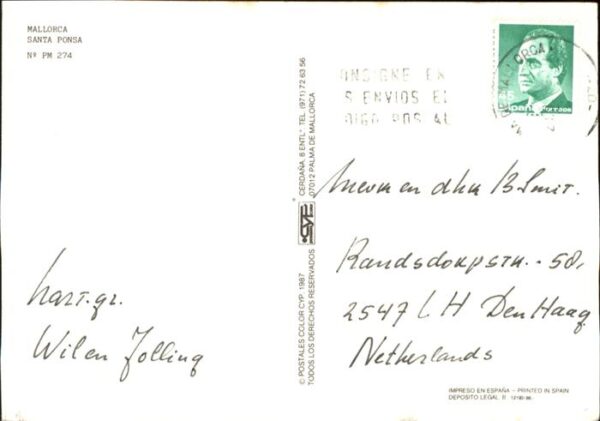 MALLORCA
SANTA PONSA
Nº PM 274
hart. gr.
Wil en Jolling
© POSTALES COLOR CYP. 1987
TODOS LOS DERECHOS RESERVADOS
CYP
CERDAÑA, 8 ENTLº TEL. (971) 72 63 56
07012 PALMA DE MALLORCA
ONSIGNE EN
S ENVIOS EL
DIGO POSTAL
MALLORCA
45
España
Mevr en dhr B Smit.
2547 LH Den Haag
Netherlands
IMPRESO EN ESPAÑA – PRINTED IN SPAIN
DEPOSITO LEGAL B.